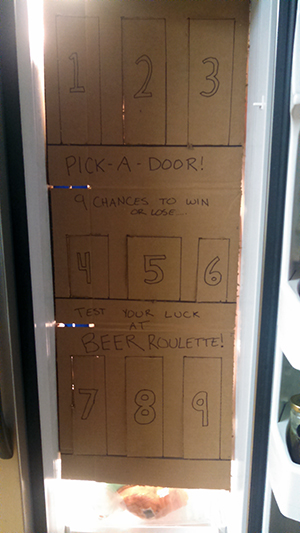 1 2 3
PICK-A-DOOR!
9 CHANCES TO WIN
OR LOSE...
4 5 6
TEST YOUR LUCK
AT
BEER ROULETTE!
7 8 9